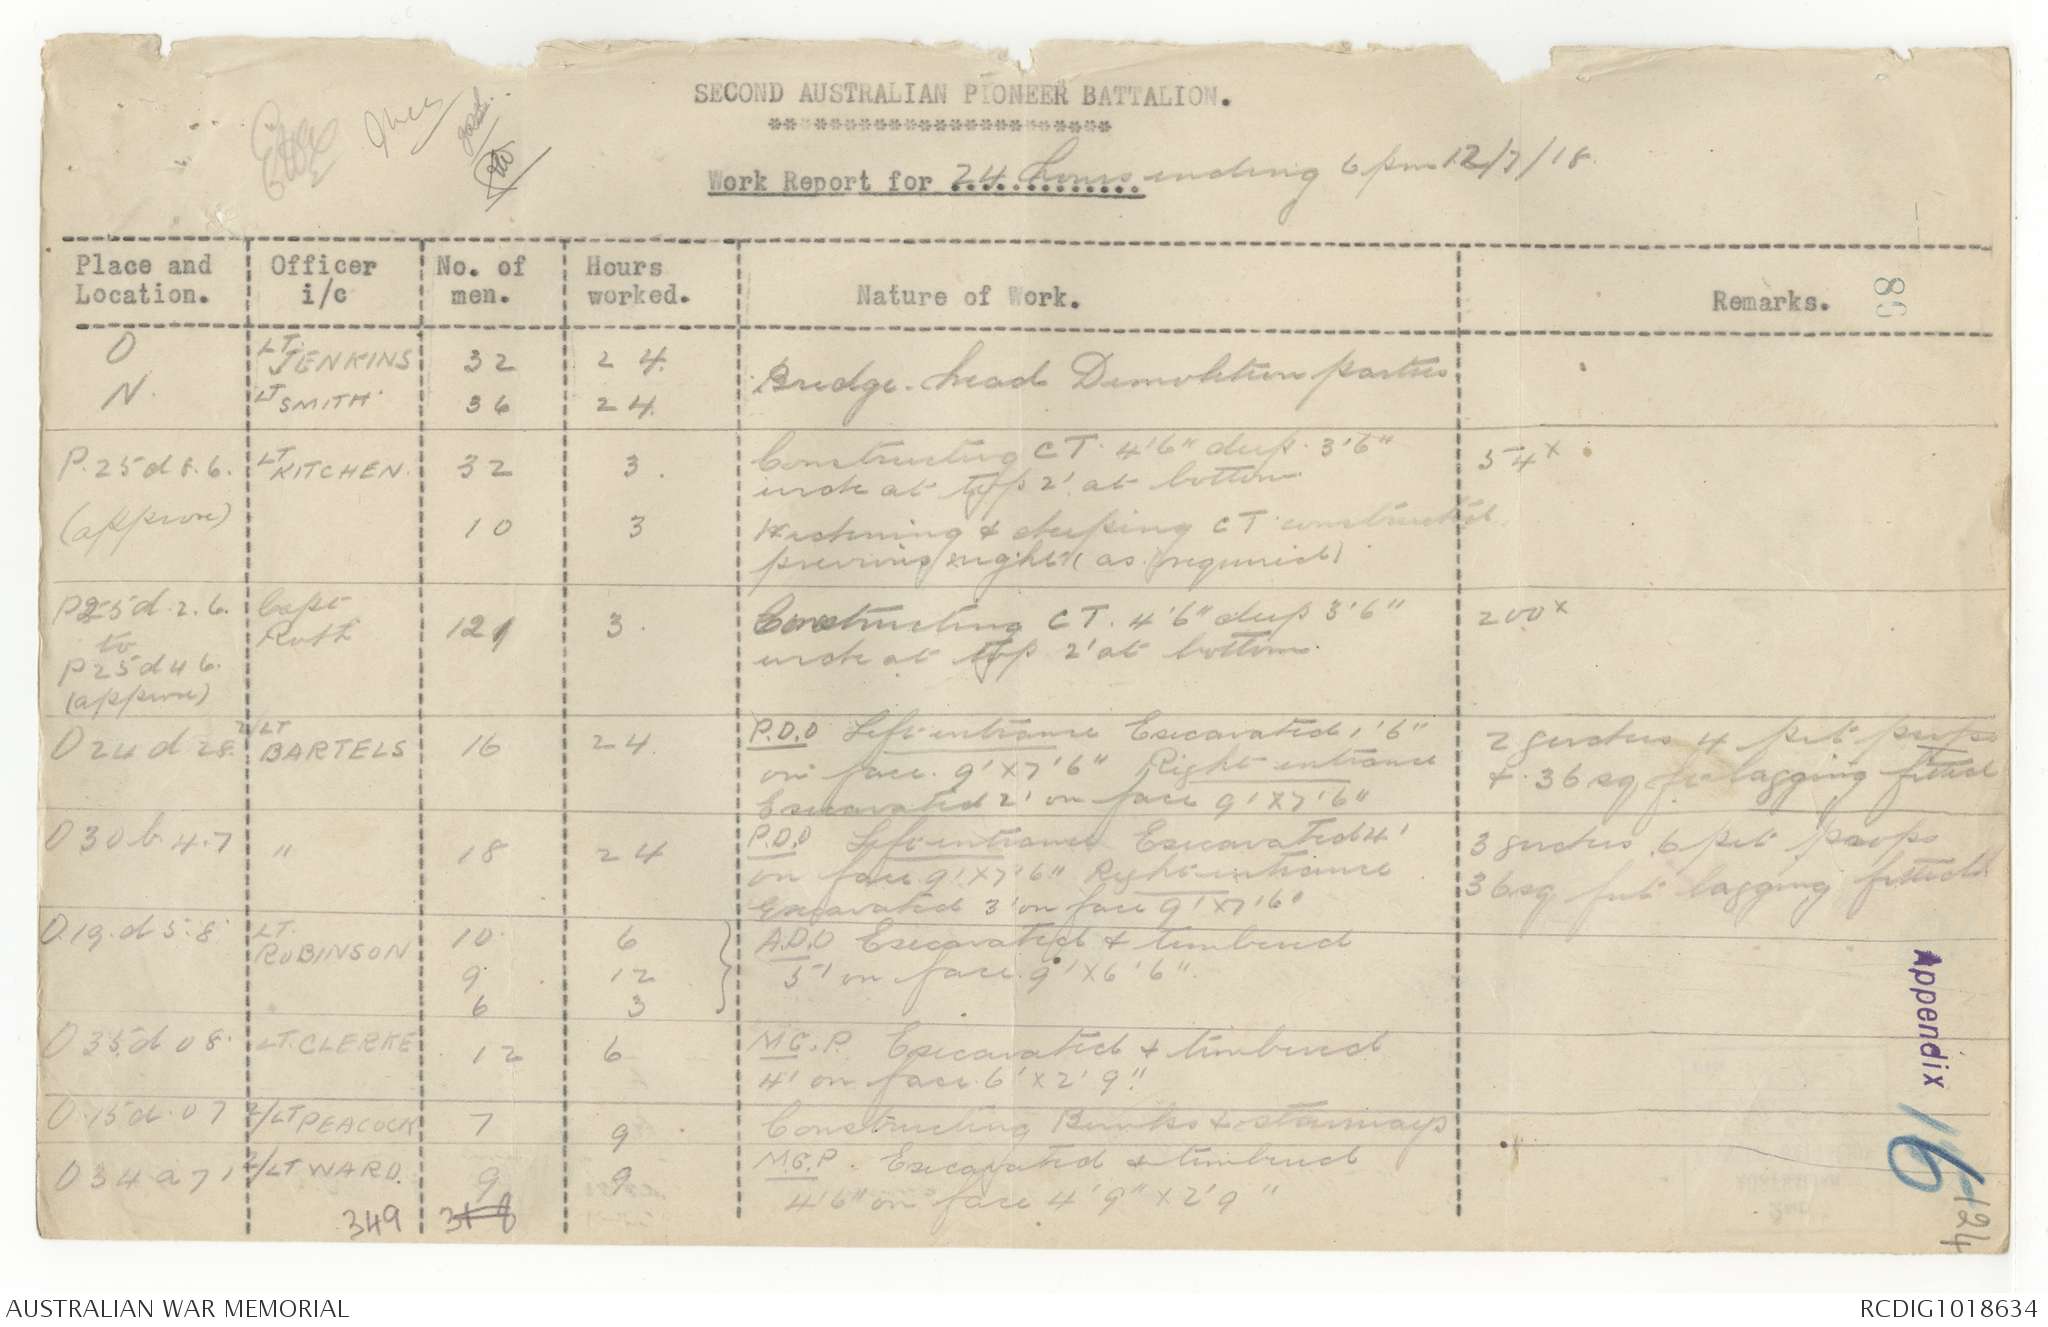 SECOND AUSTRALIAN PIONEER BATTALION.
***********************
Work Report for 24 hours ending 6 pm 12/7/18.
Place and Location. Officer i/c No. of men. Hours worked. Nature of Work. Remarks.
88
O LT. JENKINS 32 24. Bridge-head Demolition parties
N. LT SMITH. 36 24.
P.25d 8.6. LT KITCHEN. 32 3. Constructing CT. 4'6" deep. 3'6" 54x
wide at top 2' at bottom.
(approx) 10 3 Widening & deeping CT constructed
previous night (as required)
P25d.2.6. Capt Roth 121 3. Constructing CT. 4'6" deep 3'6" 200x
to
P25d46. wide at top 2' at bottom.
(approx)
O24d28. 2/LT BARTELS 16 24. P.D.O Left entrance Excavated 1'6" 2 girders 4 pit props
on face. 9'x7'6" Right entrance & 36 sq ft lagging fitted
Excavated 2' on face 9'x7'6"
O30b.4.7 " 18 24 P.D.O Left entrance Excavated 4' 3 girders 6 pit props
on face 9'x7'6" Right entrance 36 sq feet lagging fitted
Excavated 3' on face 9'x7'6"
O.19.d 5.8. LT. ROBINSON 10 6 A.D.O Excavated & timbered
9 12 5' on face. 9'x6'6".
6 3
O35d08. LT. CLERKE 12 6 M.G.P. Excavated & timbered
4' on face. 6'x2'9"
O.15d.07 2/LT PEACOCK 7 9 Constructing Bunks & stairways
O34a71 2/LT WARD. 9 9 M.G.P. Excavated & timbered
4'6" on face 4'9"x2'9"
349 318
Appendix 16
124
AUSTRALIAN WAR MEMORIAL
RCDIG1018634